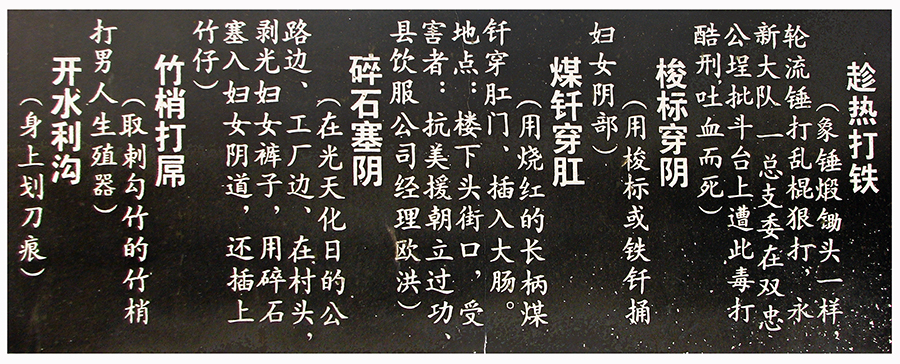 趁热打铁
（象锤煅锄头一样，
轮流锤打乱棍狠打，永
新大队一总支委在双忠
公埕批斗台上遭此毒打
酷刑，吐血而死）
梭标穿阴
（用梭标或铁钎捅
妇女阴部）
煤钎穿肛
（用烧红的长柄煤
钎穿肛门、插入大肠。
地点：楼下头街口，受
害者：抗美援朝立过功、
县饮服公司经理欧洪）
碎石塞阴
（在光天化日的公
路边、工厂边、在村头，
剥光妇女裤子，用碎石
塞入妇女阴道，还插上
竹仔）
竹梢打屌
（取刺勾竹的竹梢
打男人生殖器）
开水利沟
（身上划刀痕）